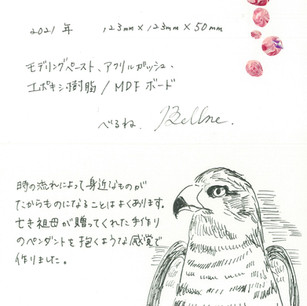 2021年 123mm×123mm×50mm
モデリングペースト、アクリルガッシュ・
エポキシ樹脂/MDFボード
べるね.
時の流れによって身近なものが
たからものになることはよくあります。
亡き祖母が贈ってくれた手作り
のペンダントを抱くような感覚で
作りました。